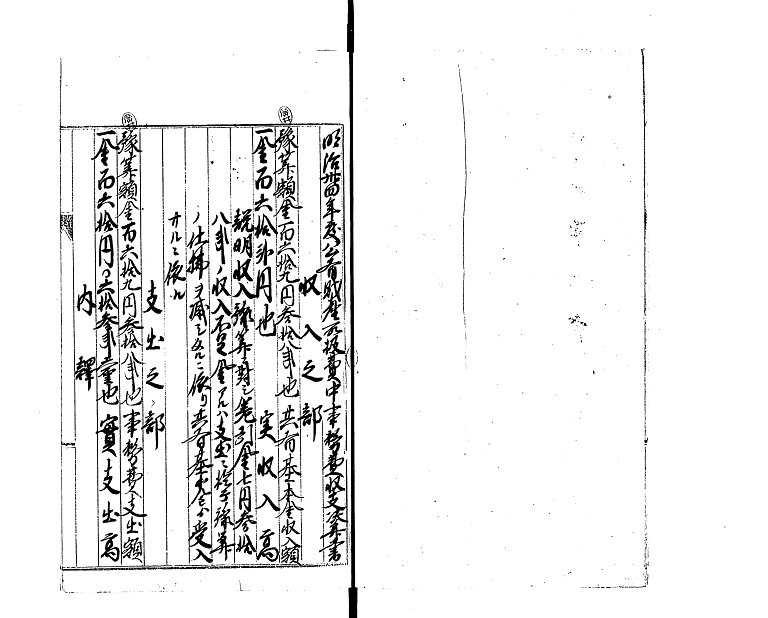 明治卅四年度公有財産所役費中事務費収支決算書
収入之部
豫算額金百六拾九円参拾八銭也 共有基本金収入額
一金百六拾弐円也 実収入高
説明収入豫算ニ対シ差引金七円参拾
八銭ノ収入不足金アルハ支出ニ於テ豫算
ノ仕拂ヲ減シタルニ依リ共有基本金ヨリ受入
ナルニ依ル
支出之部
豫算額金百六拾九円参拾八銭也 事務費支出額
一金百六拾円〇六拾参銭三厘也 實支出高
内譯